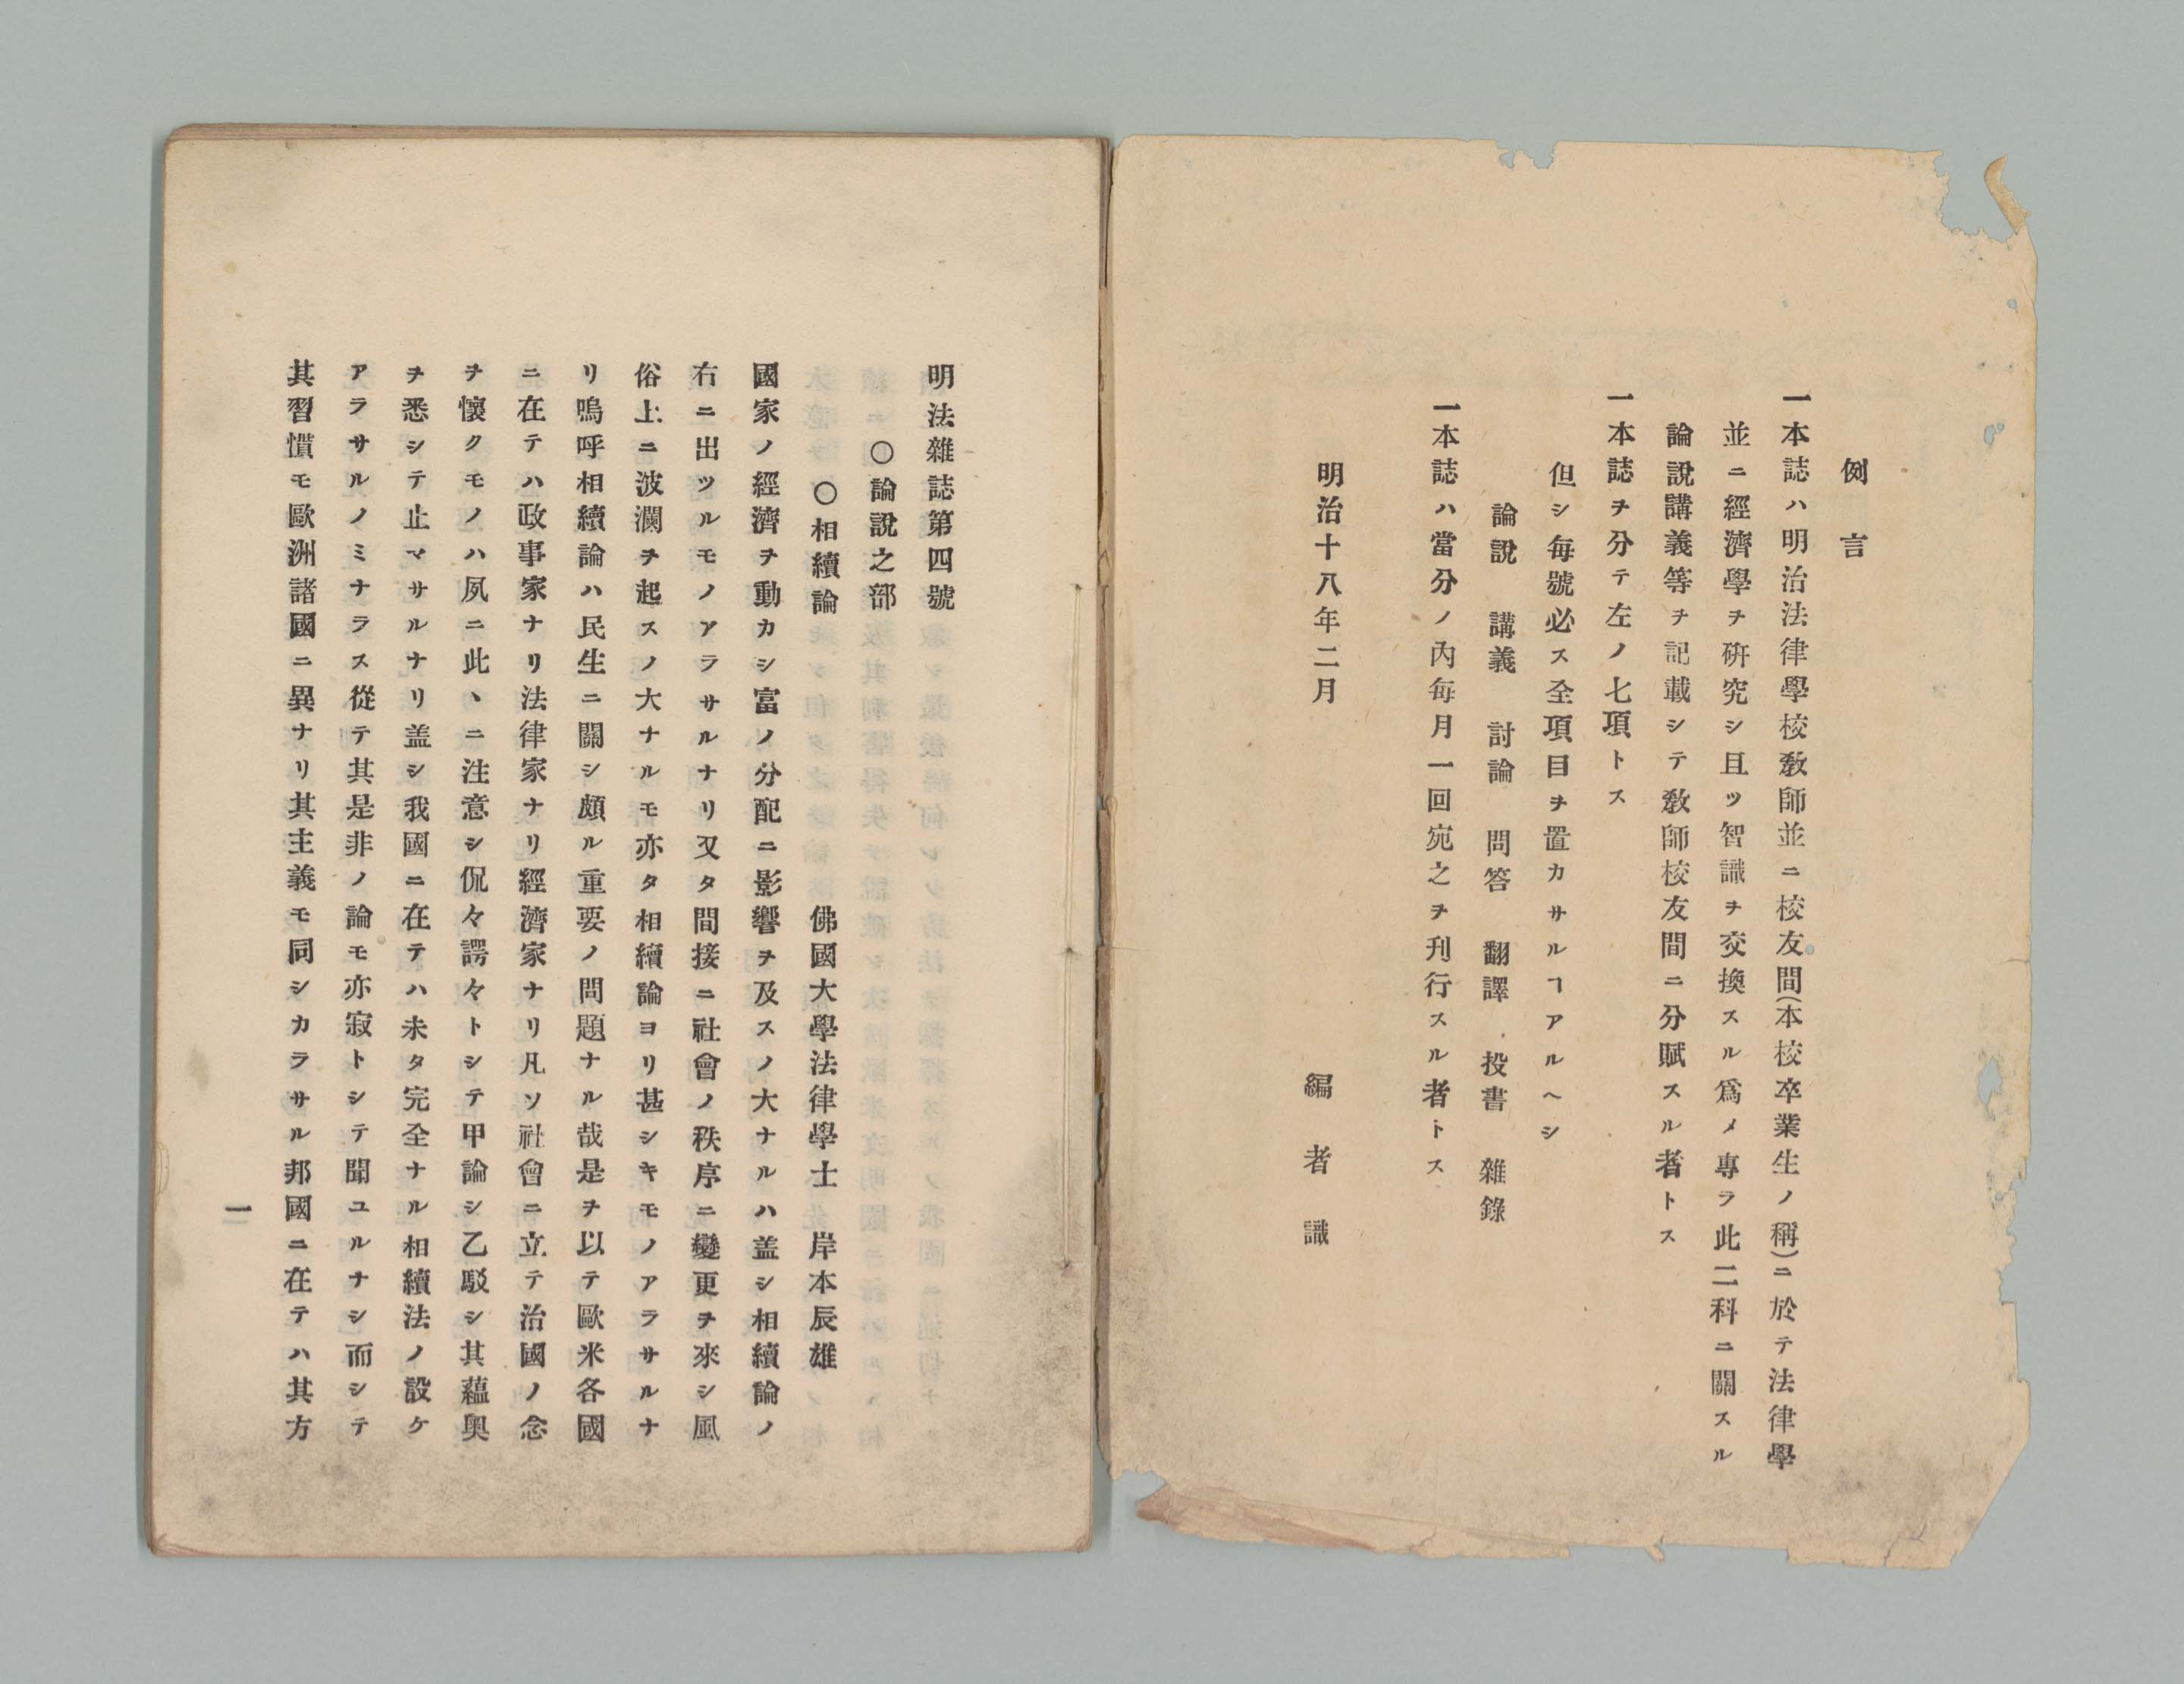 例言
一本誌ハ明治法律學校敎師並ニ校友間(本校卒業生ノ稱)ニ於テ法律學
並ニ經濟學ヲ硏究シ且ツ智識ヲ交換スル爲メ專ラ此二科ニ關スル
論說講義等ヲ記載シテ敎師校友間ニ分賦スル者トス
一本誌ヲ分テ左ノ七項トス
但シ每號必ス全項目ヲ置カサルヿアルヘシ
論說 講義 討論 問答 翻譯 投書 雜錄
一本誌ハ當分ノ內每月一回宛之ヲ刊行スル者トス
明治十八年二月
編者識
明法雜誌第四號
○論說之部
○相續論
佛國大學法律學士 岸本辰雄
國家ノ經濟ヲ動カシ富ノ分配ニ影響ヲ及スノ大ナルハ盖シ相續論ノ
右ニ出ツルモノアラサルナリ又タ間接ニ社會ノ秩序ニ變更ヲ來シ風
俗上ニ波瀾ヲ起スノ大ナルモ亦タ相續論ヨリ甚シキモノアラサルナ
リ嗚呼相續論ハ民生ニ關シ頗ル重要ノ問題ナル哉是ヲ以テ歐米各國
ニ在テハ政事家ナリ法律家ナリ經濟家ナリ凡ソ社會ニ立テ治國ノ念
ヲ懷クモノハ夙ニ此ヽニ注意シ侃々諤々トシテ甲論シ乙駁シ其蘊奧
ヲ悉シテ止マサルナリ盖シ我國ニ在テハ未タ完全ナル相續法ノ設ケ
アラサルノミナラス從テ其是非ノ論モ亦寂トシテ聞ユルナシ而シテ
其習慣モ歐洲諸國ニ異ナリ其主義モ同シカラサル邦國ニ在テハ其方
一